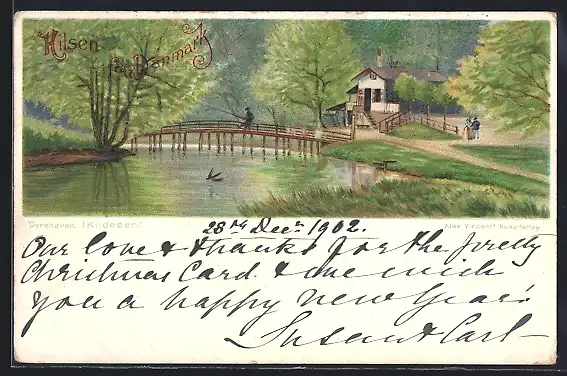 Hilsen
fra Danmark
Dyrehaven. (Kildeøen)
Alex Vincents Kunstforlag
28th Decr 1902.
Our love & thanks for the pretty
Christmas Card. & we wish
you a happy new Year!
Susan & Carl